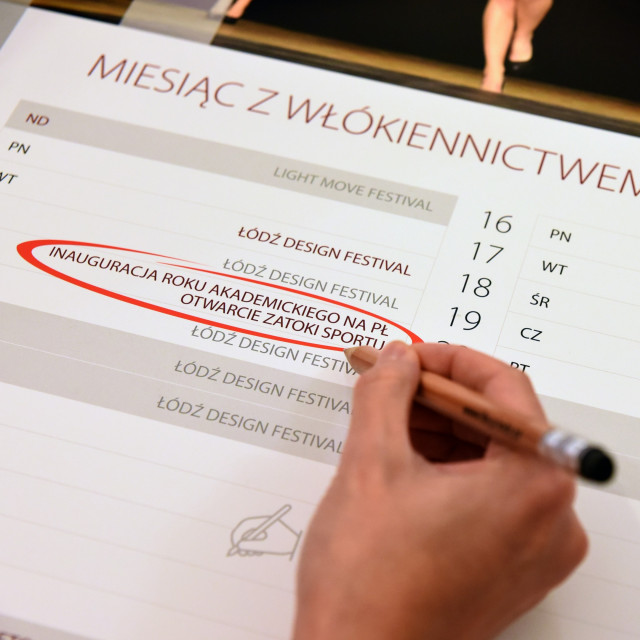 MIESIĄC Z WŁÓKIENNICTWEM
ND
LIGHT MOVE FESTIVAL
PN
WT
ŁÓDŹ DESIGN FESTIVAL
ŁÓDŹ DESIGN FESTIVAL
INAUGURACJA ROKU AKADEMICKIEGO NA PŁ
OTWARCIE ZATOKI SPORTU
ŁÓDŹ DESIGN FESTIVAL
ŁÓDŹ DESIGN FESTIVAL
ŁÓDŹ DESIGN FESTIVAL
16 PN
17 WT
18 ŚR
19 CZ
PT